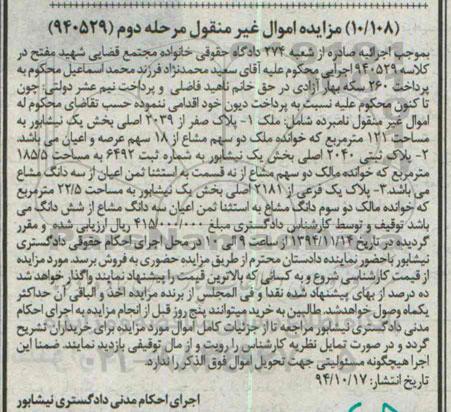 (۱۰/۱۰۸) مزایده اموال غیر منقول مرحله دوم (۹۴۰۵۲۹)
بموجب اجرائیه صادره از شعبه ۲۷۴ دادگاه حقوقی خانواده مجتمع قضایی شهید مفتح در
کلاسه ۹۴۰۵۲۹ اجرایی محکوم علیه آقای سعید محمدنژاد فرزند محمد اسماعیل محکوم به
پرداخت ۲۶۰ سکه بهار آزادی در حق خانم ناهید فاضلی و پرداخت نیم عشر دولتی: چون
تا کنون محکوم علیه نسبت به پرداخت دیون خود اقدامی ننموده حسب تقاضای محکوم له
اموال غیر منقول نامبرده شامل: ملک ۱- پلاک صفر از ۲۰۳۹ اصلی بخش یک نیشابور به
مساحت ۱۲۱ مترمربع که خوانده ملک دو سهم مشاع از ۱۸ سهم عرصه و اعیان می باشد.
۲- پلاک ثبتی ۲۰۴۰ اصلی بخش یک نیشابور به شماره ثبت ۶۴۹۲ به مساحت ۱۸۵/۵
مترمربع که خوانده مالک دو سهم مشاع از نه قسمت به استثنا ثمن اعیان از سه دانگ مشاع
می باشد.۳- پلاک یک فرعی از ۲۱۸۱ اصلی بخش یک نیشابور به مساحت ۲۲/۵ مترمربع
که خوانده مالک دو سوم دانگ مشاع به استثنا ثمن اعیان سه دانگ مشاع از شش دانگ می
باشد توقیف و توسط کارشناس دادگستری مبلغ ۴۱۵/۰۰۰/۰۰۰ ریال ارزیابی شده و مقرر
گردیده در تاریخ ۱۳۹۴/۱۱/۱۴ از ساعت ۹ الی ۱۰ در محل اجرای احکام حقوقی دادگستری
نیشابور باحضور نماینده دادستان محترم از طریق مزایده حضوری به فروش برسد. مورد مزایده
از قیمت کارشناسی شروع و به کسانی که بالاترین قیمت را پیشنهاد نمایند واگذار خواهد شد
ده درصد از بهای پیشنهاد شده نقدا و فی المجلس از برنده مزایده اخذ و الباقی آن حداکثر
یکماه وصول خواهدشد. طالبین به خرید میتوانند پنج روز قبل از انجام مزایده به اجرای احکام
مدنی دادگستری نیشابور مراجعه تا از جزئیات کامل اموال مورد مزایده برای خریداران تشریح
گردد و در صورت تمایل نظریه کارشناس را رویت و از مال توقیفی بازدید نمایند. ضمنا این
اجرا هیچگونه مسئولیتی جهت تحویل اموال فوق الذکر را ندارد.
تاریخ انتشار: ۹۴/۱۰/۱۷
اجرای احکام مدنی دادگستری نیشابور